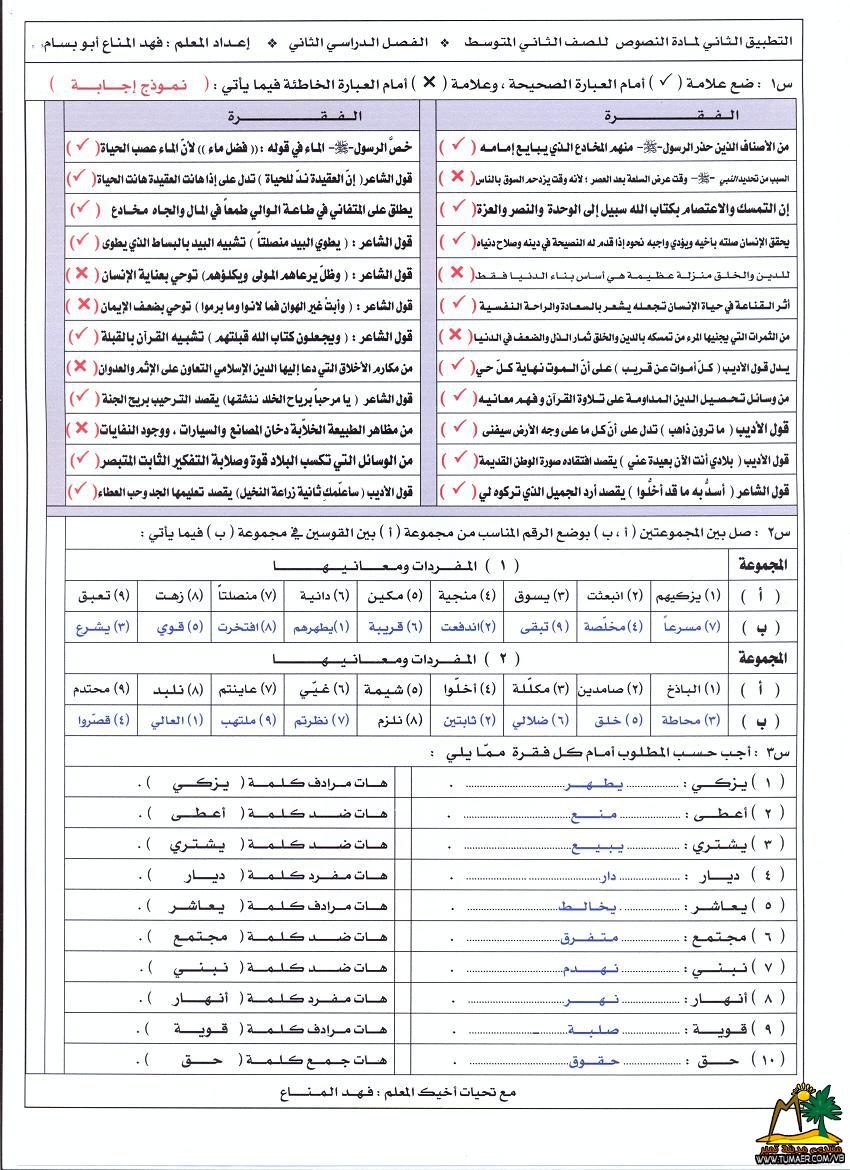 التطبيق الثاني لمادة النصوص للصف الثاني المتوسط ❖ الفصل الدراسي الثاني ❖ إعداد المعلم : فهد المناع أبو بسام
س١ : ضع علامة ( ✓ ) أمام العبارة الصحيحة ، وعلامة ( ✗ ) أمام العبارة الخاطئة فيما يأتي : ( نموذج إجابة )
الفقرة
من الأصناف الذين حذر الرسول -ﷺ- منهم المخادع الذي يبايع إمامه ( ✓ )
السبب من تحديد النبي -ﷺ- وقت عرض السلعة بعد العصر ؛ لأنه وقت يزدحم السوق بالناس ( ✗ )
إن التمسك والاعتصام بكتاب الله سبيل إلى الوحدة والنصر والعزة ( ✓ )
يحقق الإنسان صلته بأخيه ويؤدي واجبه نحوه إذا قدم له النصيحة في دينه وصلاح دنياه ( ✓ )
للدين والخلق منزلة عظيمة هي أساس بناء الدنيا فقط ( ✗ )
أثر القناعة في حياة الإنسان تجعله يشعر بالسعادة والراحة النفسية ( ✓ )
من الثمرات التي يجنيها المرء من تمسكه بالدين والخلق ثمار الذل والضعف في الدنيا ( ✗ )
يدل قول الأديب ( كلّ أموات عن قريب ) على أنّ الموت نهاية كلّ حي ( ✓ )
من وسائل تحصيل الدين المداومة على تلاوة القرآن وفهم معانيه ( ✓ )
قول الأديب ( ما ترون ذاهب ) تدل على أنّ كل ما على وجه الأرض سيفنى ( ✓ )
قول الأديب ( بلادي أنت الآن بعيدة عني ) يقصد افتقاده صورة الوطن القديمة ( ✓ )
قول الشاعر ( أسدُّ به ما قد أخلُّوا ) يقصد أرد الجميل الذي تركوه لي ( ✓ )
الفقرة
خصَّ الرسول -ﷺ- الماء في قوله : (( فضل ماء )) لأنّ الماء عصب الحياة ( ✓ )
قول الشاعر ( إنّ العقيدة ندّ للحياة ) تدل على إذا هانت العقيدة هانت الحياة ( ✓ )
يطلق على المتفاني في طاعة الوالي طمعاً في المال والجاه مخادع ( ✓ )
قول الشاعر : ( يطوي البيد منصلتاً ) تشبيه البيد بالبساط الذي يطوى ( ✓ )
قول الشاعر : ( وظلّ يرعاهم المولى ويكلؤهم ) توحي بعناية الإنسان ( ✗ )
قول الشاعر : ( وأبتْ غير الهوان فما لانوا وما برموا ) توحي بضعف الإيمان ( ✗ )
قول الشاعر : ( ويجعلون كتاب الله قبلتهم ) تشبيه القرآن بالقبلة ( ✓ )
من مكارم الأخلاق التي دعا إليها الدين الإسلامي التعاون على الإثم والعدوان ( ✗ )
قول الشاعر ( يا مرحباً برياح الخلد ننشقها ) يقصد الترحيب بريح الجنة ( ✓ )
من مظاهر الطبيعة الخلاّبة دخان المصانع والسيارات ، ووجود النفايات ( ✗ )
من الوسائل التي تكسب البلاد قوة وصلابة التفكير الثابت المتبصر ( ✓ )
قول الأديب ( سأعلّمك ثانية زراعة النخيل ) يقصد تعليمها الجد وحب العطاء ( ✓ )
س٢ : صل بين المجموعتين ( أ ، ب ) بوضع الرقم المناسب من مجموعة ( أ ) بين القوسين في مجموعة ( ب ) فيما يأتي :
المجموعة ( ١ ) المفردات ومعانيها
( أ ) (١) يزكيهم (٢) انبعثت (٣) يسوق (٤) منجية (٥) مكين (٦) دانية (٧) منصلتاً (٨) زهت (٩) تعبق
( ب ) (٧) مسرعاً (٤) مخلّصة (٩) تبقى (٢) اندفعت (٦) قريبة (١) يطهرهم (٨) افتخرت (٥) قوي (٣) يشرع
المجموعة ( ٢ ) المفردات ومعانيها
( أ ) (١) الباذخ (٢) صامدين (٣) مكلّلة (٤) أخلّوا (٥) شيمة (٦) غيّي (٧) عاينتم (٨) نلبد (٩) محتدم
( ب ) (٣) محاطة (٥) خلق (٦) ضلالي (٢) ثابتين (٨) نلزم (٧) نظرتم (٩) ملتهب (١) العالي (٤) قصّروا
س٣ : أجب حسب المطلوب أمام كل فقرة ممّا يلي :
( ١ ) يزكي : يطهر . هات مرادف كلمة ( يزكي ) .
( ٢ ) أعطى : منع . هات ضد كلمة ( أعطى ) .
( ٣ ) يشتري : يبيع . هات ضد كلمة ( يشتري ) .
( ٤ ) ديار : دار . هات مفرد كلمة ( ديار ) .
( ٥ ) يعاشر : يخالط . هات مرادف كلمة ( يعاشر ) .
( ٦ ) مجتمع : متفرق . هات ضد كلمة ( مجتمع ) .
( ٧ ) نبني : نهدم . هات ضد كلمة ( نبني ) .
( ٨ ) أنهار : نهر . هات مفرد كلمة ( أنهار ) .
( ٩ ) قوية : صلبة . هات مرادف كلمة ( قوية ) .
( ١٠ ) حق : حقوق . هات جمع كلمة ( حق ) .
مع تحيات أخيك المعلم : فهد المناع
منتدى مدينة تمير
WWW.TUMAER.COM/VB